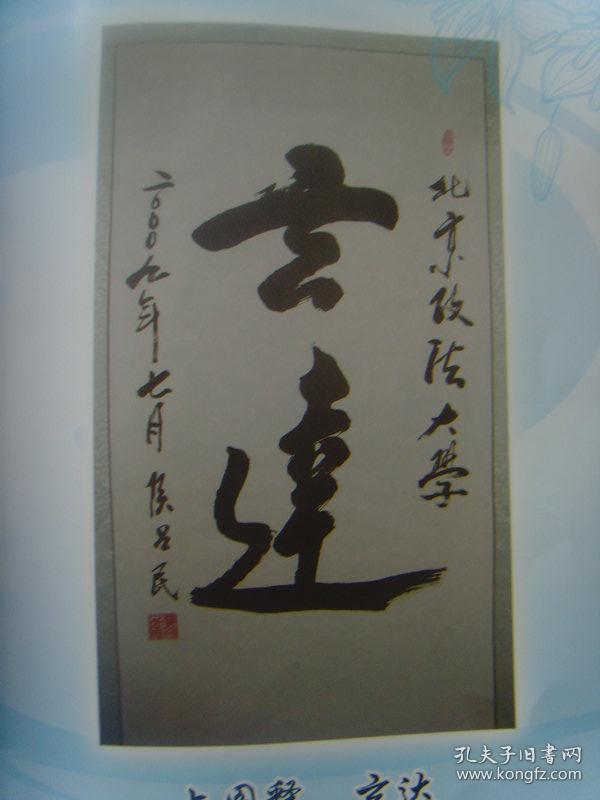 北京政法大學
達
二〇〇〇九年七月 侯吕民
孔夫子旧书网
www.kongfz.com